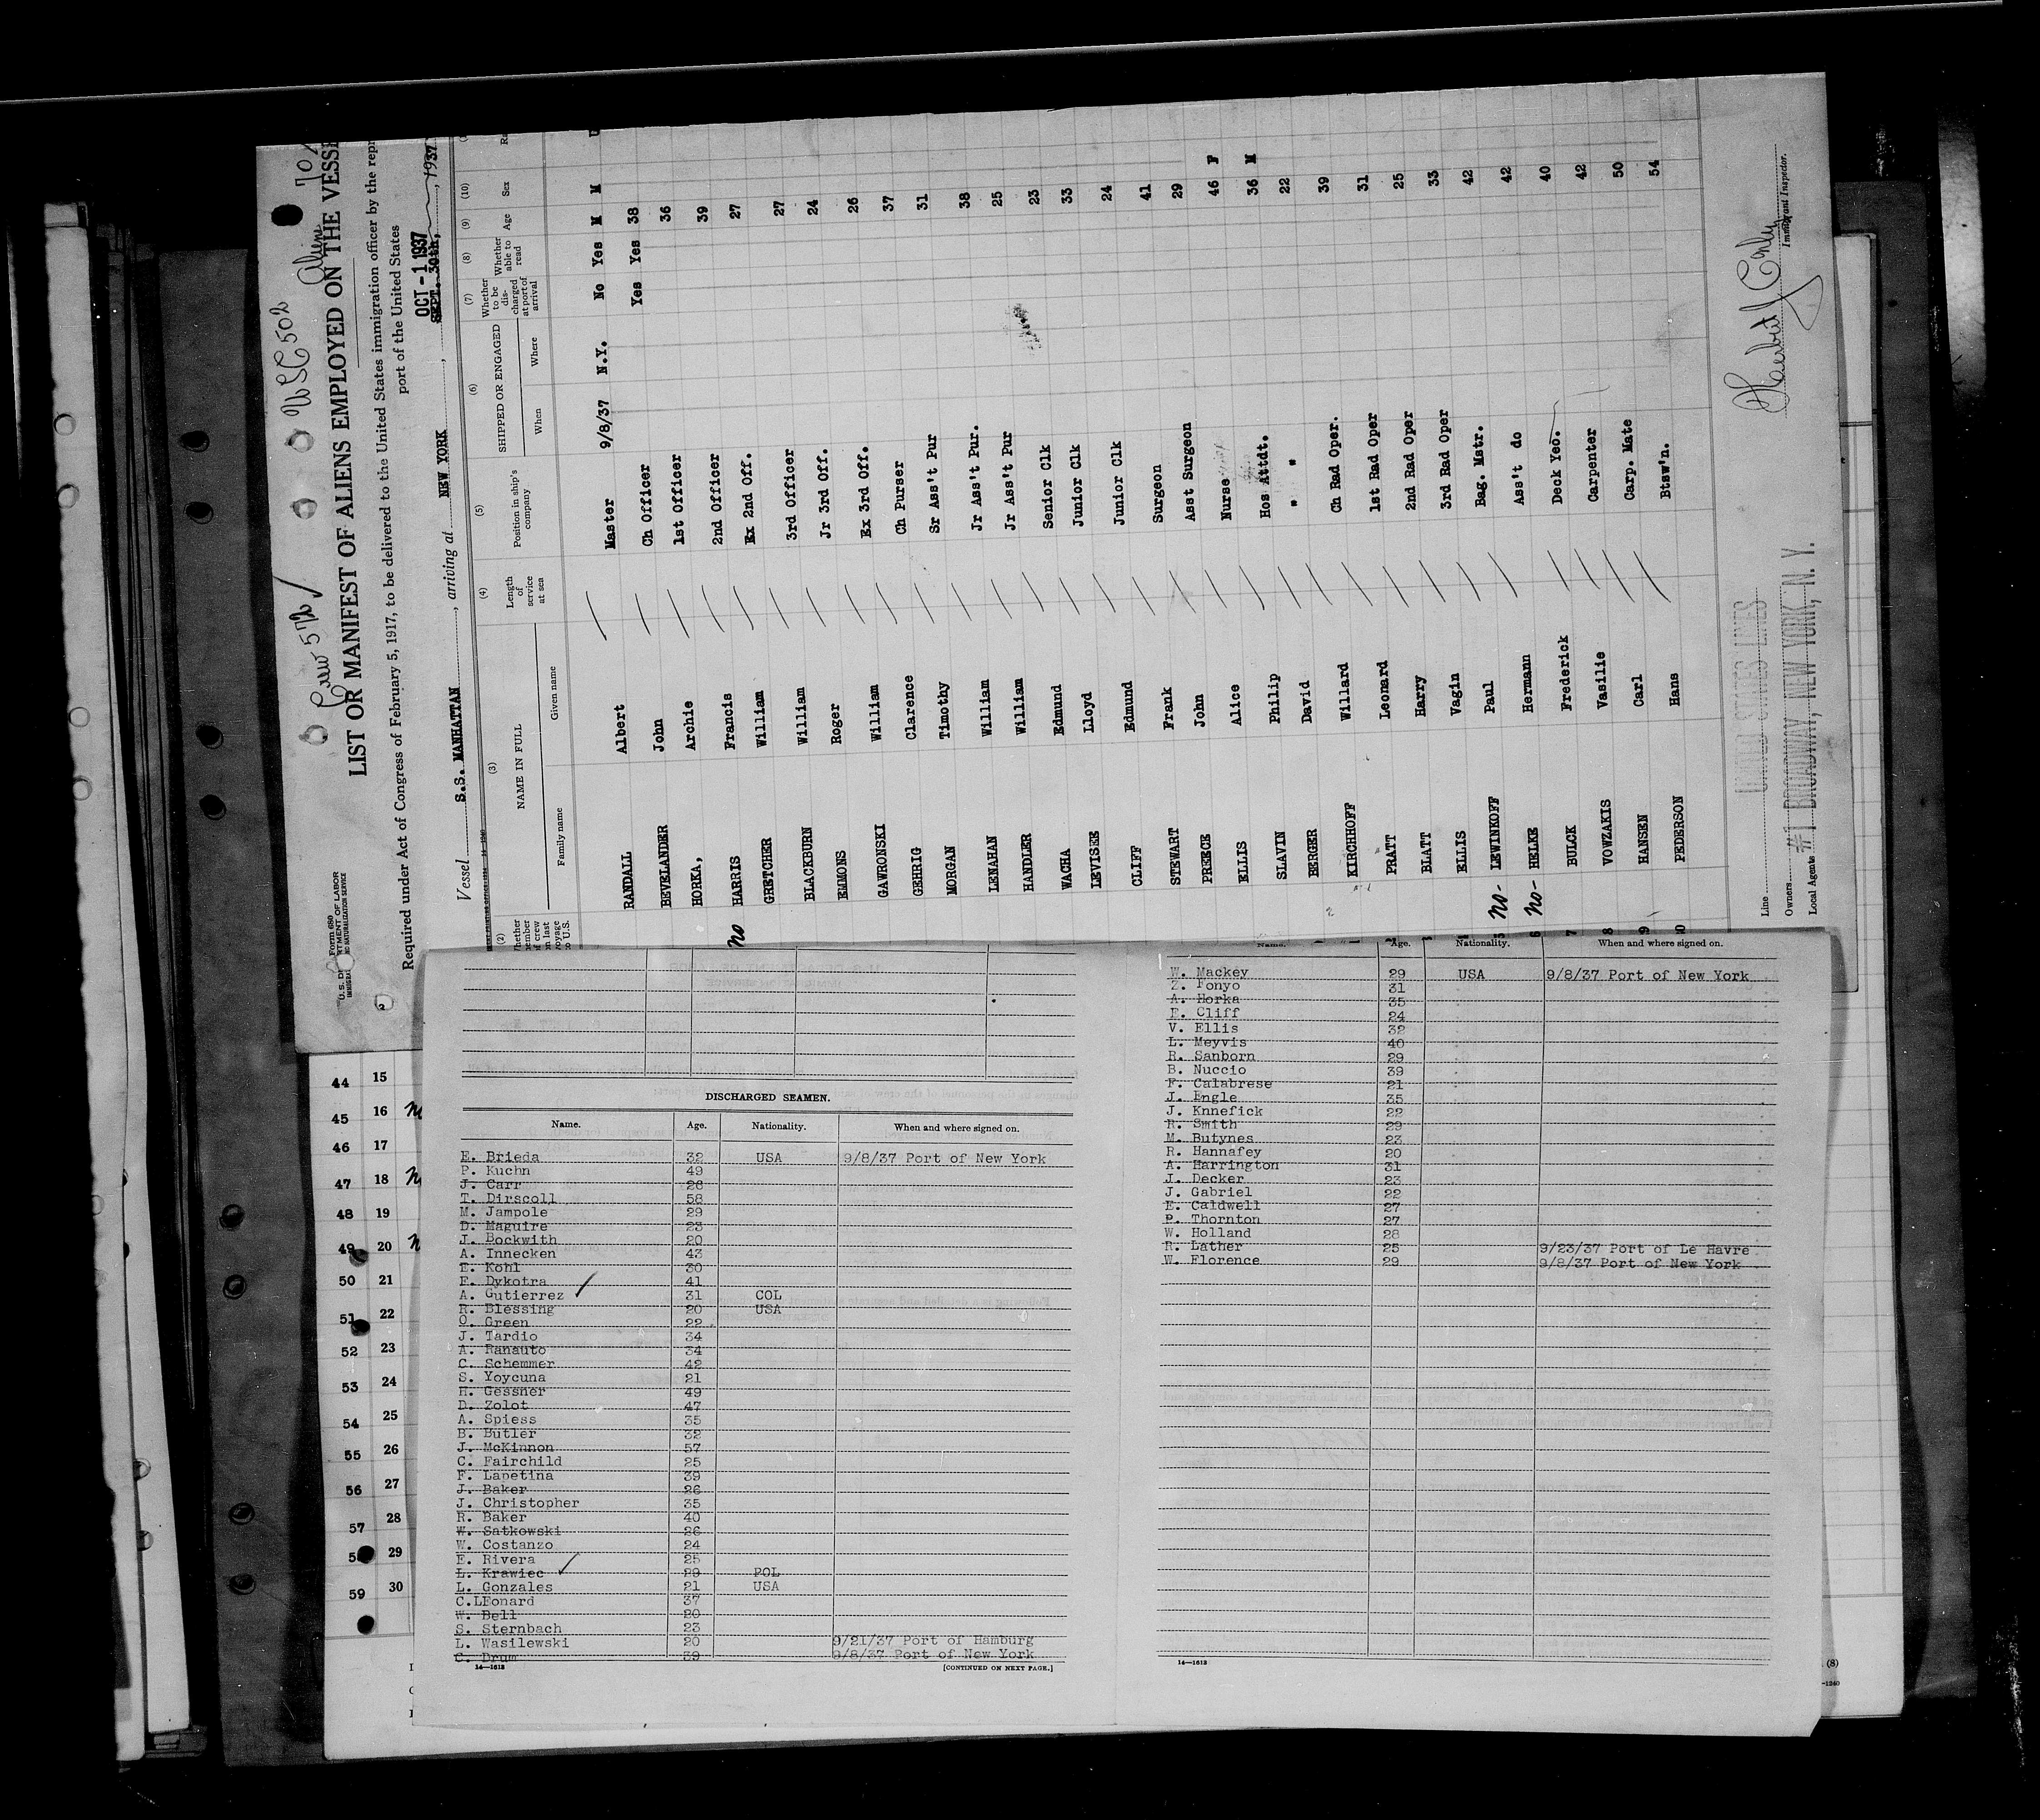 Crew 572✓ USC 502 Aliens 70
Form 680
U.S. DEPARTMENT OF LABOR
IMMIGRATION AND NATURALIZATION SERVICE
LIST OR MANIFEST OF ALIENS EMPLOYED ON THE VESSE
Required under Act of Congress of February 5, 1917, to be delivered to the United States immigration officer by the repr
port of the United States
OCT - 1 1937
Vessel S.S. MANHATTAN, arriving at NEW YORK, SEPT. 30th, 1937
(2) (3) (4) (5) (6) (7) (8) (9) (10)
Whether member of crew on last voyage to U.S.
NAME IN FULL
Family name Given name
Length of service at sea
Position in ship's company
SHIPPED OR ENGAGED
When Where
Whether to be discharged at port of arrival
Whether able to read
Age
Sex
RANDALL Albert Master 9/8/37 N.Y. No Yes M M U
BEVELANDER John Ch Officer Yes Yes 38
HORKA, Archie 1st Officer 36
no HARRIS Francis 2nd Officer 39
GRETCHER William Ex 2nd Off. 27
BLACKBURN William 3rd Officer 27
EMMONS Roger Jr 3rd Off. 24
GAWRONSKI William Ex 3rd Off. 26
GEHRIG Clarence Ch Purser 37
MORGAN Timothy Sr Ass't Pur 31
LENAHAN William Jr Ass't Pur. 38
HANDLER William Jr Ass't Pur 25
WACHA Edmund Senior Clk 23
LEVISEE Lloyd Junior Clk 33
CLIFF Edmund Junior Clk 24
STEWART Frank Surgeon 41
PREECE John Asst Surgeon 29
ELLIS Alice Nurse 46 F
SLAVIN Philip Hos Attdt. 36 M
BERGER David " " 22
KIRCHHOFF Willard Ch Rad Oper. 39
PRATT Leonard 1st Rad Oper 31
BLATT Harry 2nd Rad Oper 25
ELLIS Vagin 3rd Rad Oper 33
no- LEWINKOFF Paul Bag. Mstr. 42
no- HELKE Hermann Ass't do 42
BULCK Frederick Deck Yeo. 40
VOWZAKIS Vasilie Carpenter 42
HANSEN Carl Carp. Mate 50
PEDERSON Hans Btsw'n. 54
Line UNITED STATES LINES
Owners
Local Agents #1 BROADWAY, NEW YORK, N. Y.
Immigrant Inspector.
44 15
45 16
46 17
47 18
48 19
49 20
50 21
51 22
52 23
53 24
54 25
55 26
56 27
57 28
29
59 30
DISCHARGED SEAMEN.
Name. Age. Nationality. When and where signed on.
E. Brieda 32 USA 9/8/37 Port of New York
P. Kuchn 49
J. Carr 26
T. Dirscoll 58
M. Jampole 29
D. Maguire 23
J. Bockwith 20
A. Innecken 43
E. Kohl 30
F. Dykotra 41
A. Gutierrez ✓ 31 COL
R. Blessing 20 USA
O. Green 22
J. Tardio 34
A. Ranauto 34
C. Schemmer 42
S. Yoycuna 21
H. Gessner 49
D. Zolot 47
A. Spiess 35
B. Butler 32
J. McKinnon 57
C. Fairchild 25
F. Lapetina 39
J. Baker 26
J. Christopher 35
R. Baker 40
W. Satkowski 26
W. Costanzo 24
E. Rivera 25
L. Krawiec ✓ 29 POL
L. Gonzales 21 USA
C.LEonard 37
W. Bell 20
S. Sternbach 23
L. Wasilewski 20 9/21/37 Port of Hamburg
C. Drum 39 9/8/37 Port of New York
14—1613 [CONTINUED ON NEXT PAGE.]
Name. Age. Nationality. When and where signed on.
W. Mackey 29 USA 9/8/37 Port of New York
Z. Fonyo 31
A. Horka 35
E. Cliff 24
V. Ellis 32
L. Meyvis 40
R. Sanborn 29
B. Nuccio 39
F. Calabrese 21
J. Engle 35
J. Knnefick 22
R. Smith 29
M. Butynes 23
R. Hannafey 20
A. Harrington 31
J. Decker 23
J. Gabriel 22
E. Caldwell 27
P. Thornton 27
W. Holland 28
R. Lather 25 9/23/37 Port of Le Havre
W. Florence 29 9/8/37 Port of New York
14—1613
(8)
-1240